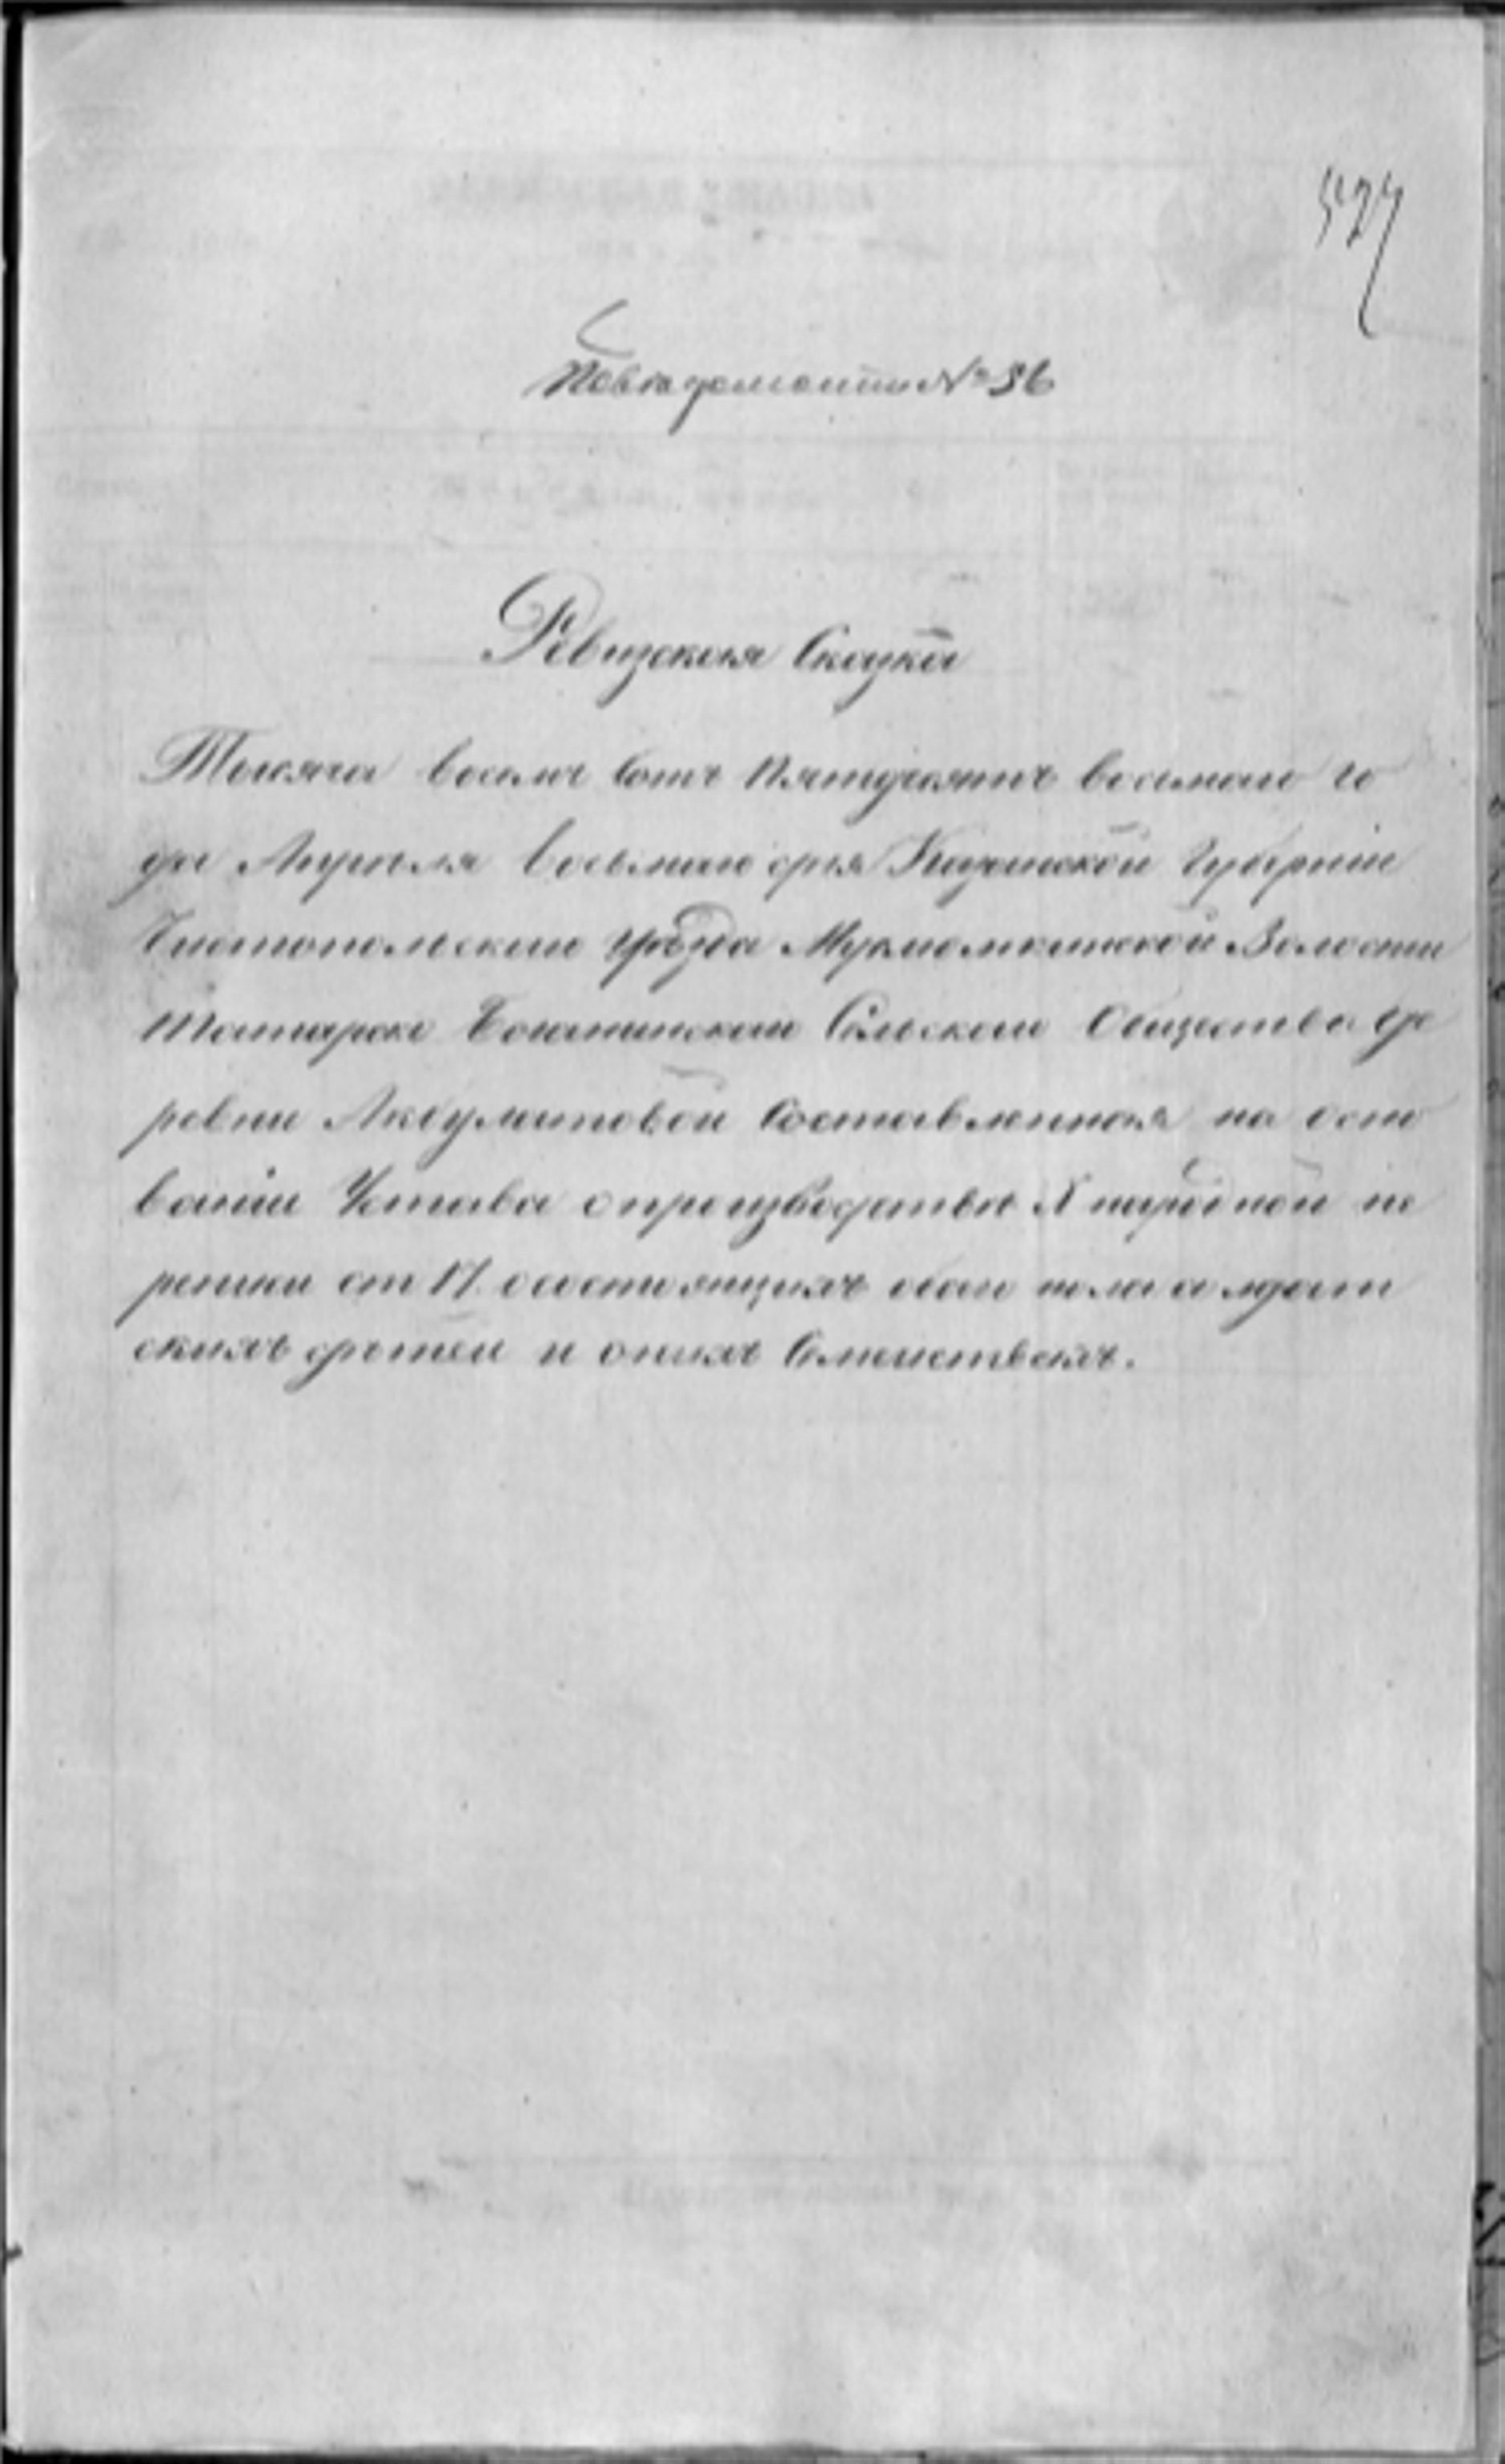 527
По ведомости № 36
Ревизская Сказка
Тысяча восемь сотъ пятьдесятъ восьмаго го
да Апреля восьмаго дня Казанской Губерніи
Чистопольскаго уѣзда Мурмолкинской Волости
Татарско Сельскаго Общества де
ревни Акбулатовой Составленная на осно
ваніи Устава о производствѣ X народной пе
реписи от о состоящихъ обоего пола солдат
скихъ дѣтей и о ихъ Семействахъ.